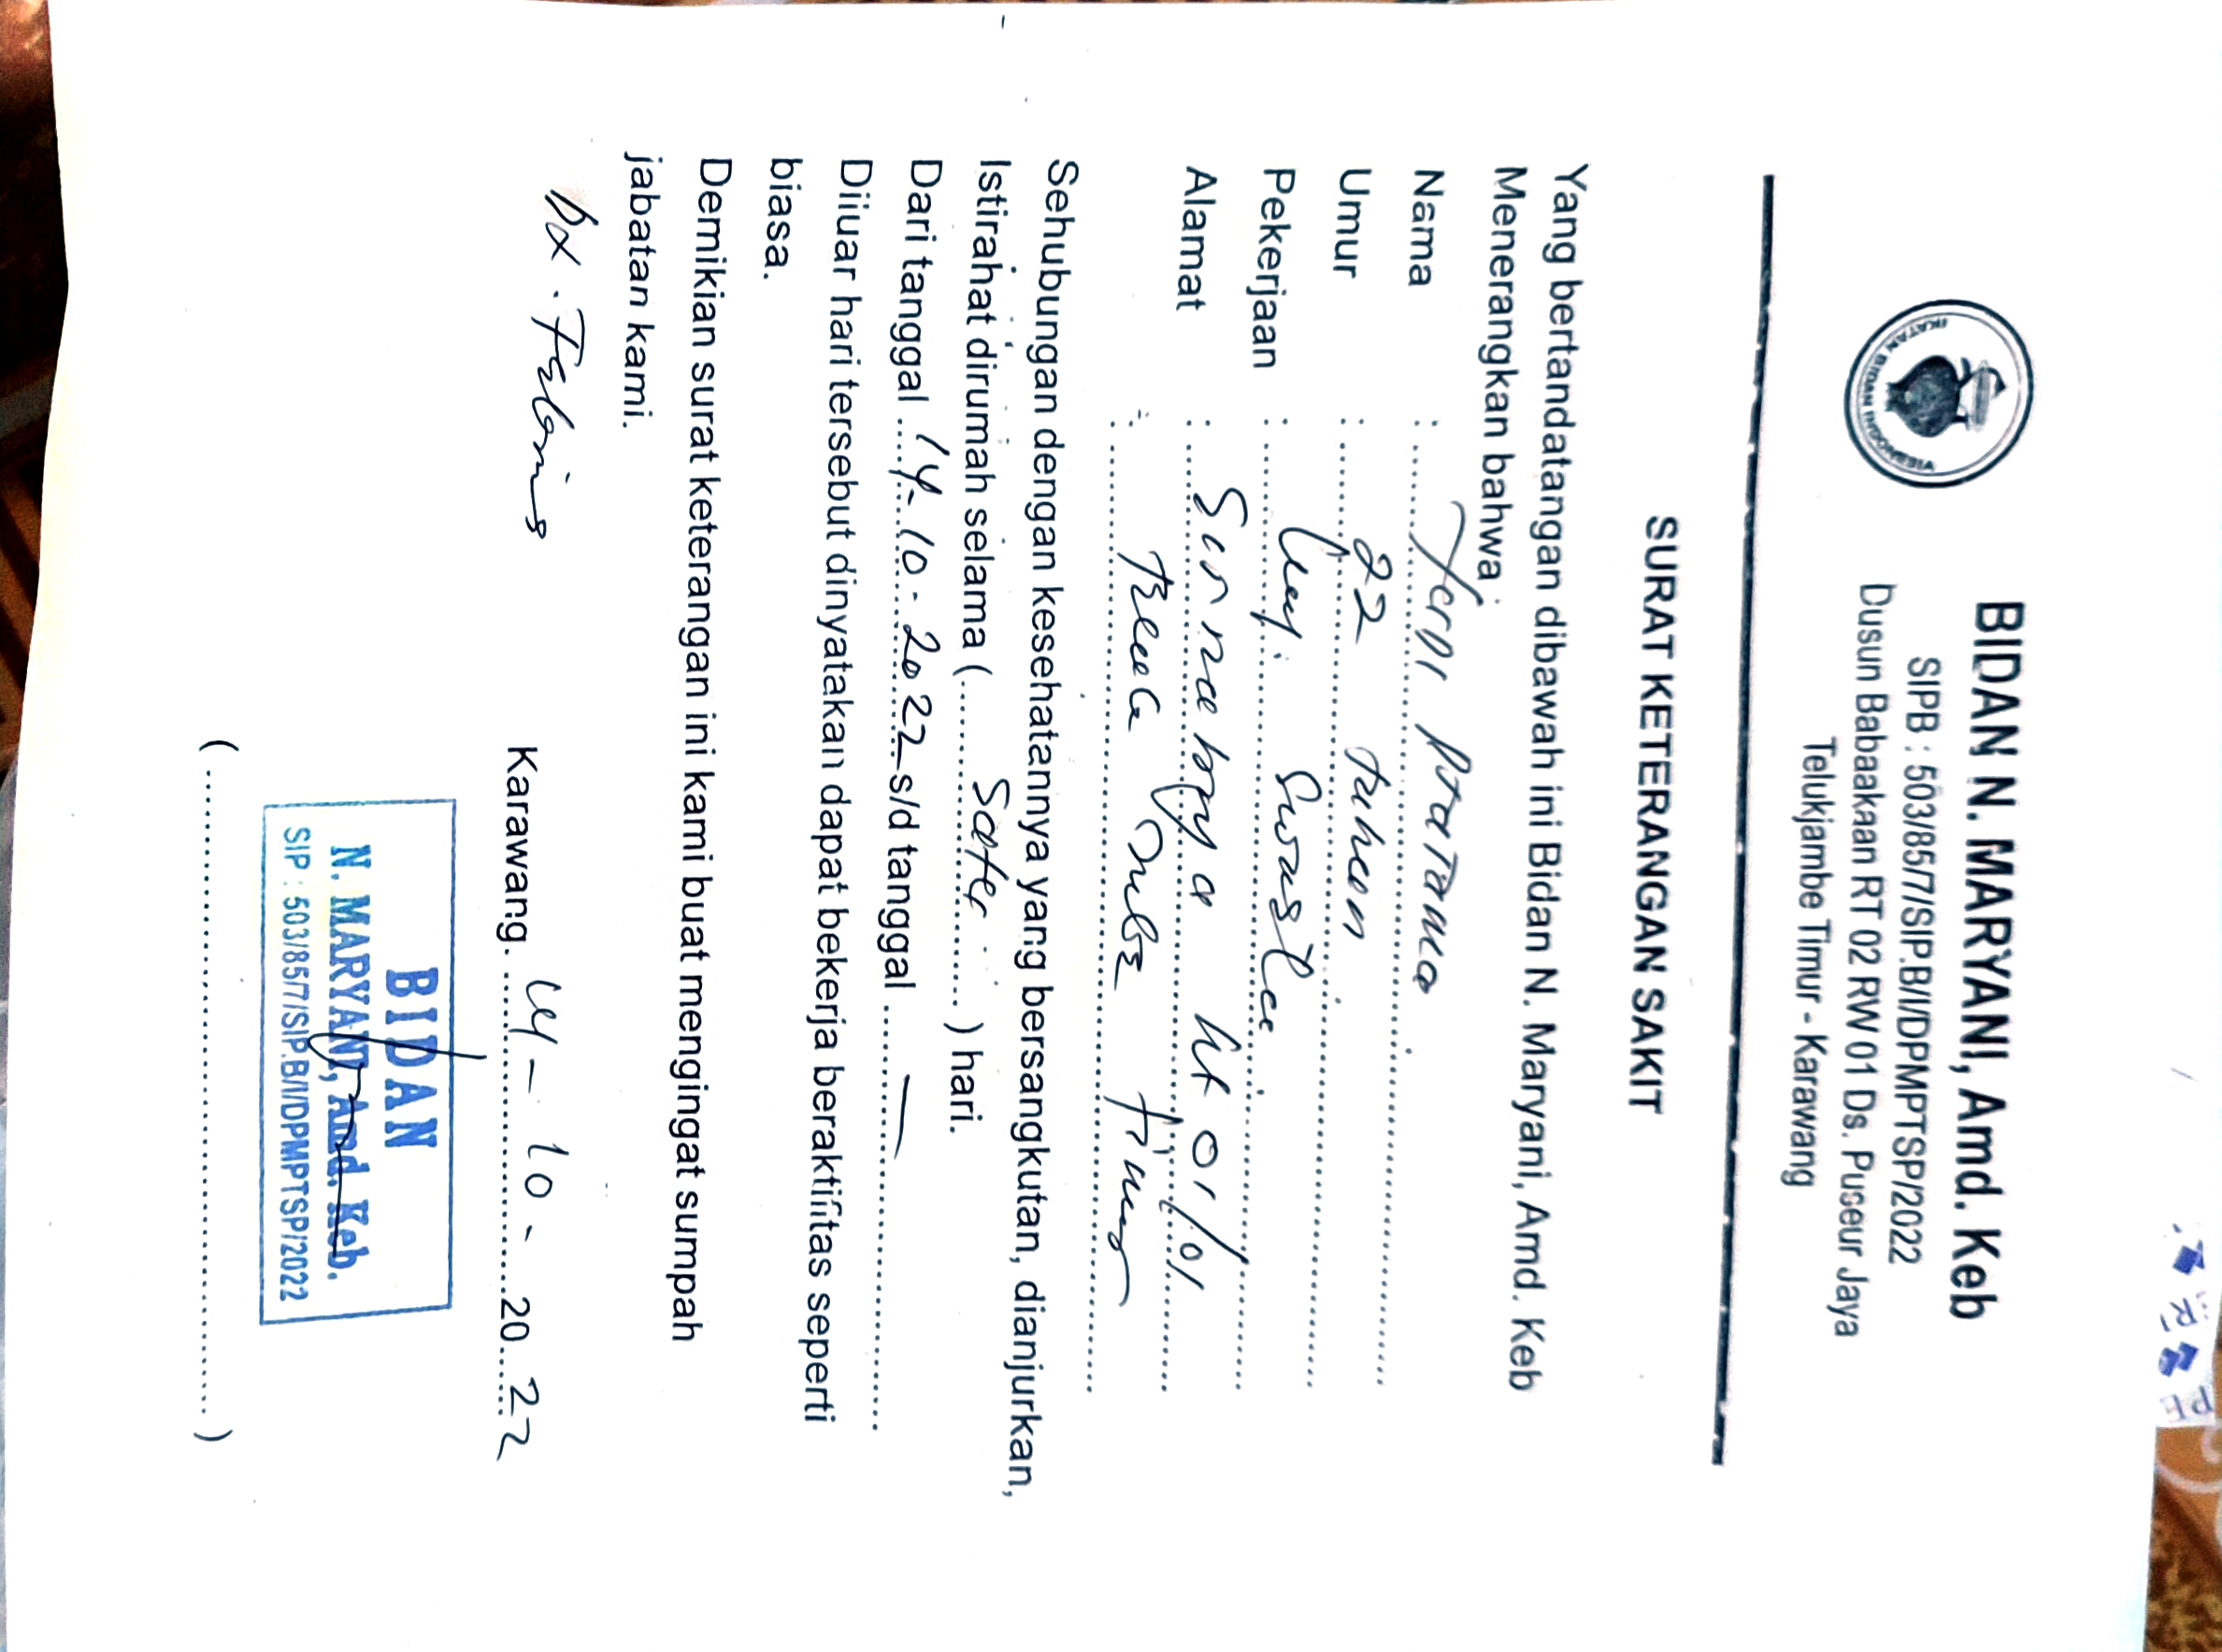 IKATAN BIDAN INDONESIA
BIDAN N. MARYANI, Amd. Keb
SIPB : 503/85/7/SIP.B/I/DPMPTSP/2022
Dusun Babaakaan RT 02 RW 01 Ds. Puseur Jaya
Telukjambe Timur - Karawang
SURAT KETERANGAN SAKIT
Yang bertandatangan dibawah ini Bidan N. Maryani, Amd. Keb
Menerangkan bahwa :
Nama : Pratama
Umur : 22 tahun
Pekerjaan :
Alamat : 01/01
:
Sehubungan dengan kesehatannya yang bersangkutan, dianjurkan,
Istirahat dirumah selama ( Satu ) hari.
Dari tanggal 14-10-2022 s/d tanggal —
Diluar hari tersebut dinyatakan dapat bekerja beraktifitas seperti
biasa.
Demikian surat keterangan ini kami buat mengingat sumpah
jabatan kami.
Dx. Febris
Karawang. 14 - 10 - 2022
BIDAN
N. MARYANI, Amd. Keb.
SIP : 503/85/7/SIP.B/I/DPMPTSP/2022
( )